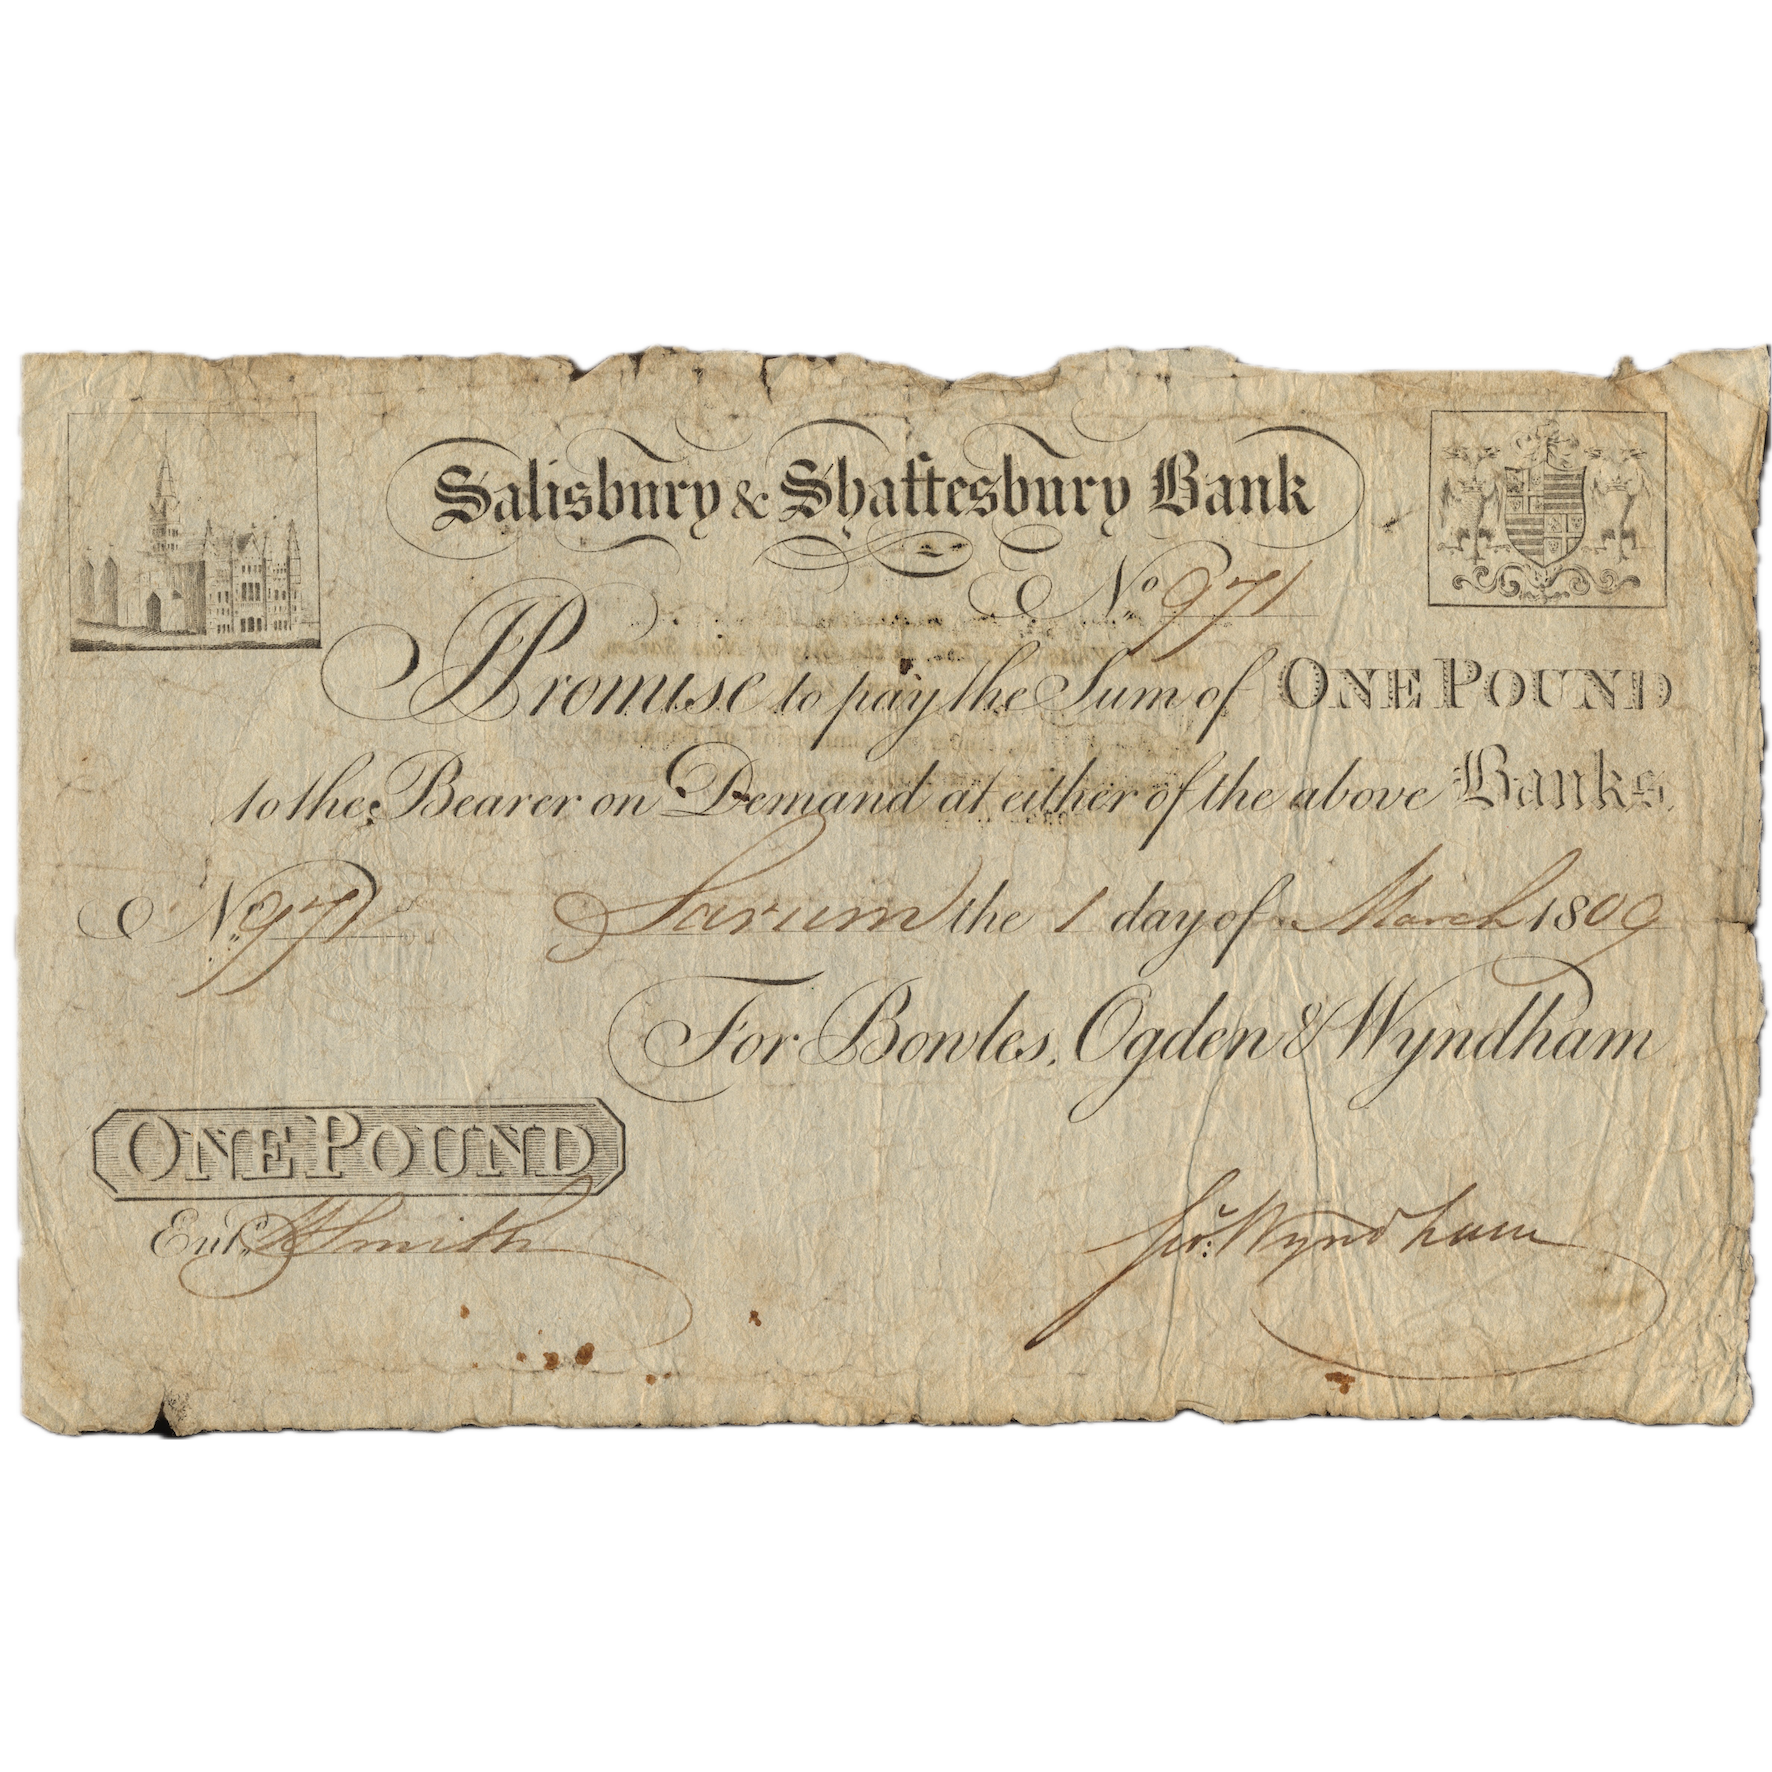 Salisbury & Shaftesbury Bank
No. 971
I Promise to pay the Sum of ONE POUND
to the Bearer on Demand at either of the above Banks.
No. 971 Sarum the 1 day of March 1809
For Bowles, Ogden & Wyndham
ONE POUND
Entd. Smith
Wyndham